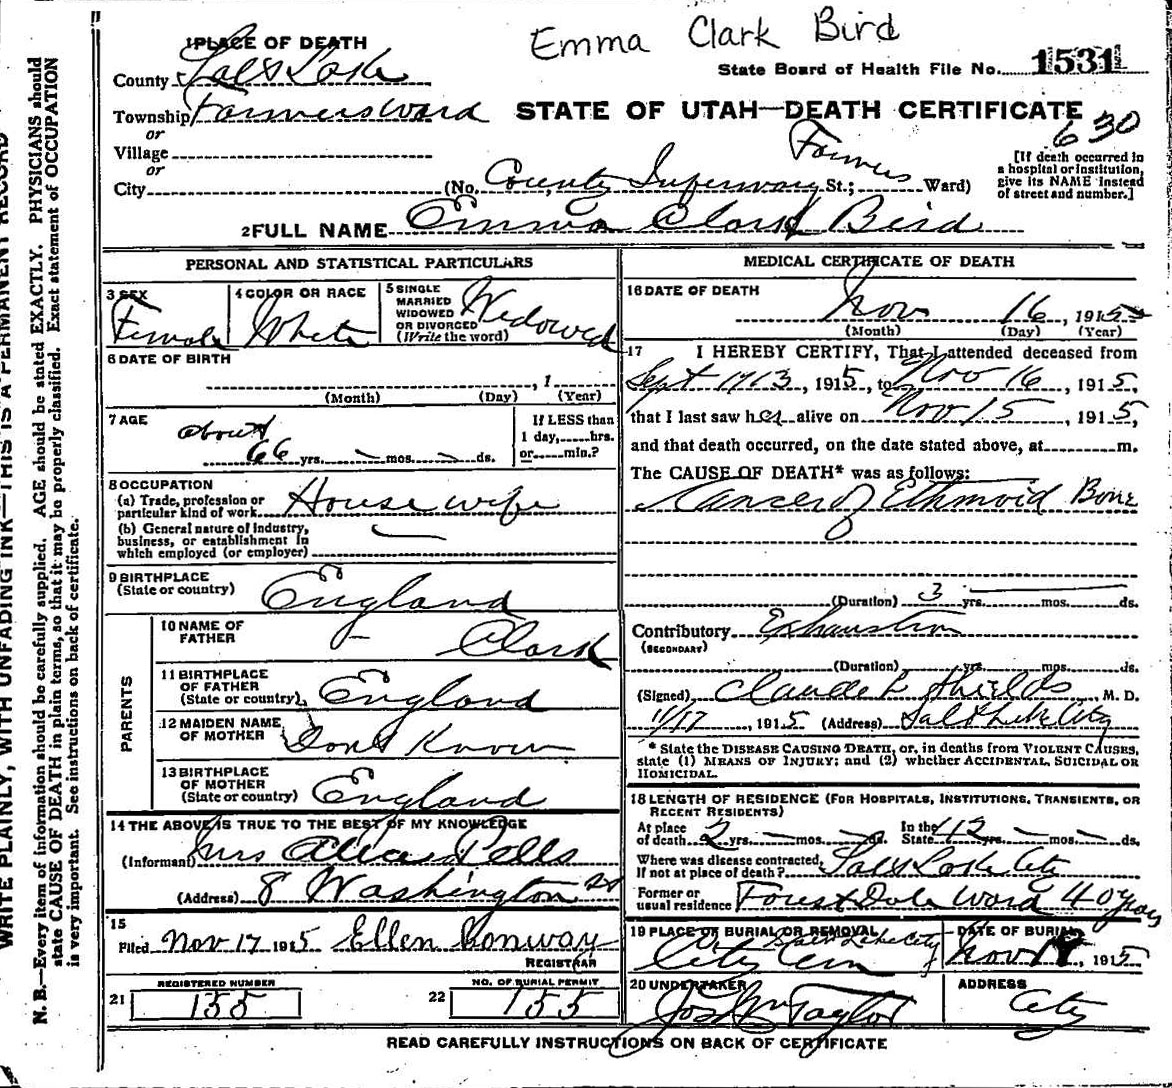 Emma Clark Bird
1 PLACE OF DEATH
County Salt Lake
State Board of Health File No. 1531
Township Farmers Ward
STATE OF UTAH—DEATH CERTIFICATE
or
630
Village
or
Farmers
[If death occurred in a hospital or institution, give its NAME instead of street and number.]
City (No. County Infirmary St.; Ward)
2 FULL NAME Emma Clark Bird
PERSONAL AND STATISTICAL PARTICULARS
3 SEX Female
4 COLOR OR RACE White
5 SINGLE MARRIED WIDOWED OR DIVORCED (Write the word) Widowed
6 DATE OF BIRTH
, 1
(Month) (Day) (Year)
7 AGE about
66 yrs. — mos. — ds.
If LESS than 1 day, hrs. or min.?
8 OCCUPATION
(a) Trade, profession or particular kind of work House wife
(b) General nature of industry, business, or establishment in which employed (or employer)
9 BIRTHPLACE (State or country) England
PARENTS
10 NAME OF FATHER — Clark
11 BIRTHPLACE OF FATHER (State or country) England
12 MAIDEN NAME OF MOTHER Dont Know
13 BIRTHPLACE OF MOTHER (State or country) England
14 THE ABOVE IS TRUE TO THE BEST OF MY KNOWLEDGE
(Informant) Mrs Pells
(Address) 8 Washington
15
Filed Nov 17 1915 Ellen Conway
REGISTRAR
21 REGISTERED NUMBER 155
22 NO. OF BURIAL PERMIT 155
MEDICAL CERTIFICATE OF DEATH
16 DATE OF DEATH
Nov 16, 1915
(Month) (Day) (Year)
17 I HEREBY CERTIFY, That I attended deceased from
Sept 1913, 1915, to Nov 16, 1915,
that I last saw her alive on Nov 15 1915,
and that death occurred, on the date stated above, at m.
The CAUSE OF DEATH* was as follows:
Cancer of Ethmoid Bone
(Duration) 3 yrs. mos. ds.
Contributory Exhaustion
(SECONDARY)
(Duration) yrs. mos. ds.
(Signed) Claude L Shields M. D.
11/17, 1915 (Address) Salt Lake City
* State the DISEASE CAUSING DEATH, or, in deaths from VIOLENT CAUSES, state (1) MEANS OF INJURY; and (2) whether ACCIDENTAL, SUICIDAL OR HOMICIDAL.
18 LENGTH OF RESIDENCE (FOR HOSPITALS, INSTITUTIONS, TRANSIENTS, OR RECENT RESIDENTS)
At place of death 2 yrs. — mos. — ds. In the State 42 yrs. — mos. — ds.
Where was disease contracted, If not at place of death? Salt Lake City
Former or usual residence Forest Dale Ward 40 years
19 PLACE OF BURIAL OR REMOVAL Salt Lake City
City Cem
DATE OF BURIAL
Nov 1915
20 UNDERTAKER
Jos Wm Taylor
ADDRESS
City
READ CAREFULLY INSTRUCTIONS ON BACK OF CERTIFICATE
WRITE PLAINLY, WITH UNFADING INK—THIS IS A PERMANENT RECORD
N. B.—Every item of information should be carefully supplied. AGE should be stated EXACTLY. PHYSICIANS should
state CAUSE OF DEATH in plain terms, so that it may be properly classified. Exact statement of OCCUPATION
is very important. See instructions on back of certificate.